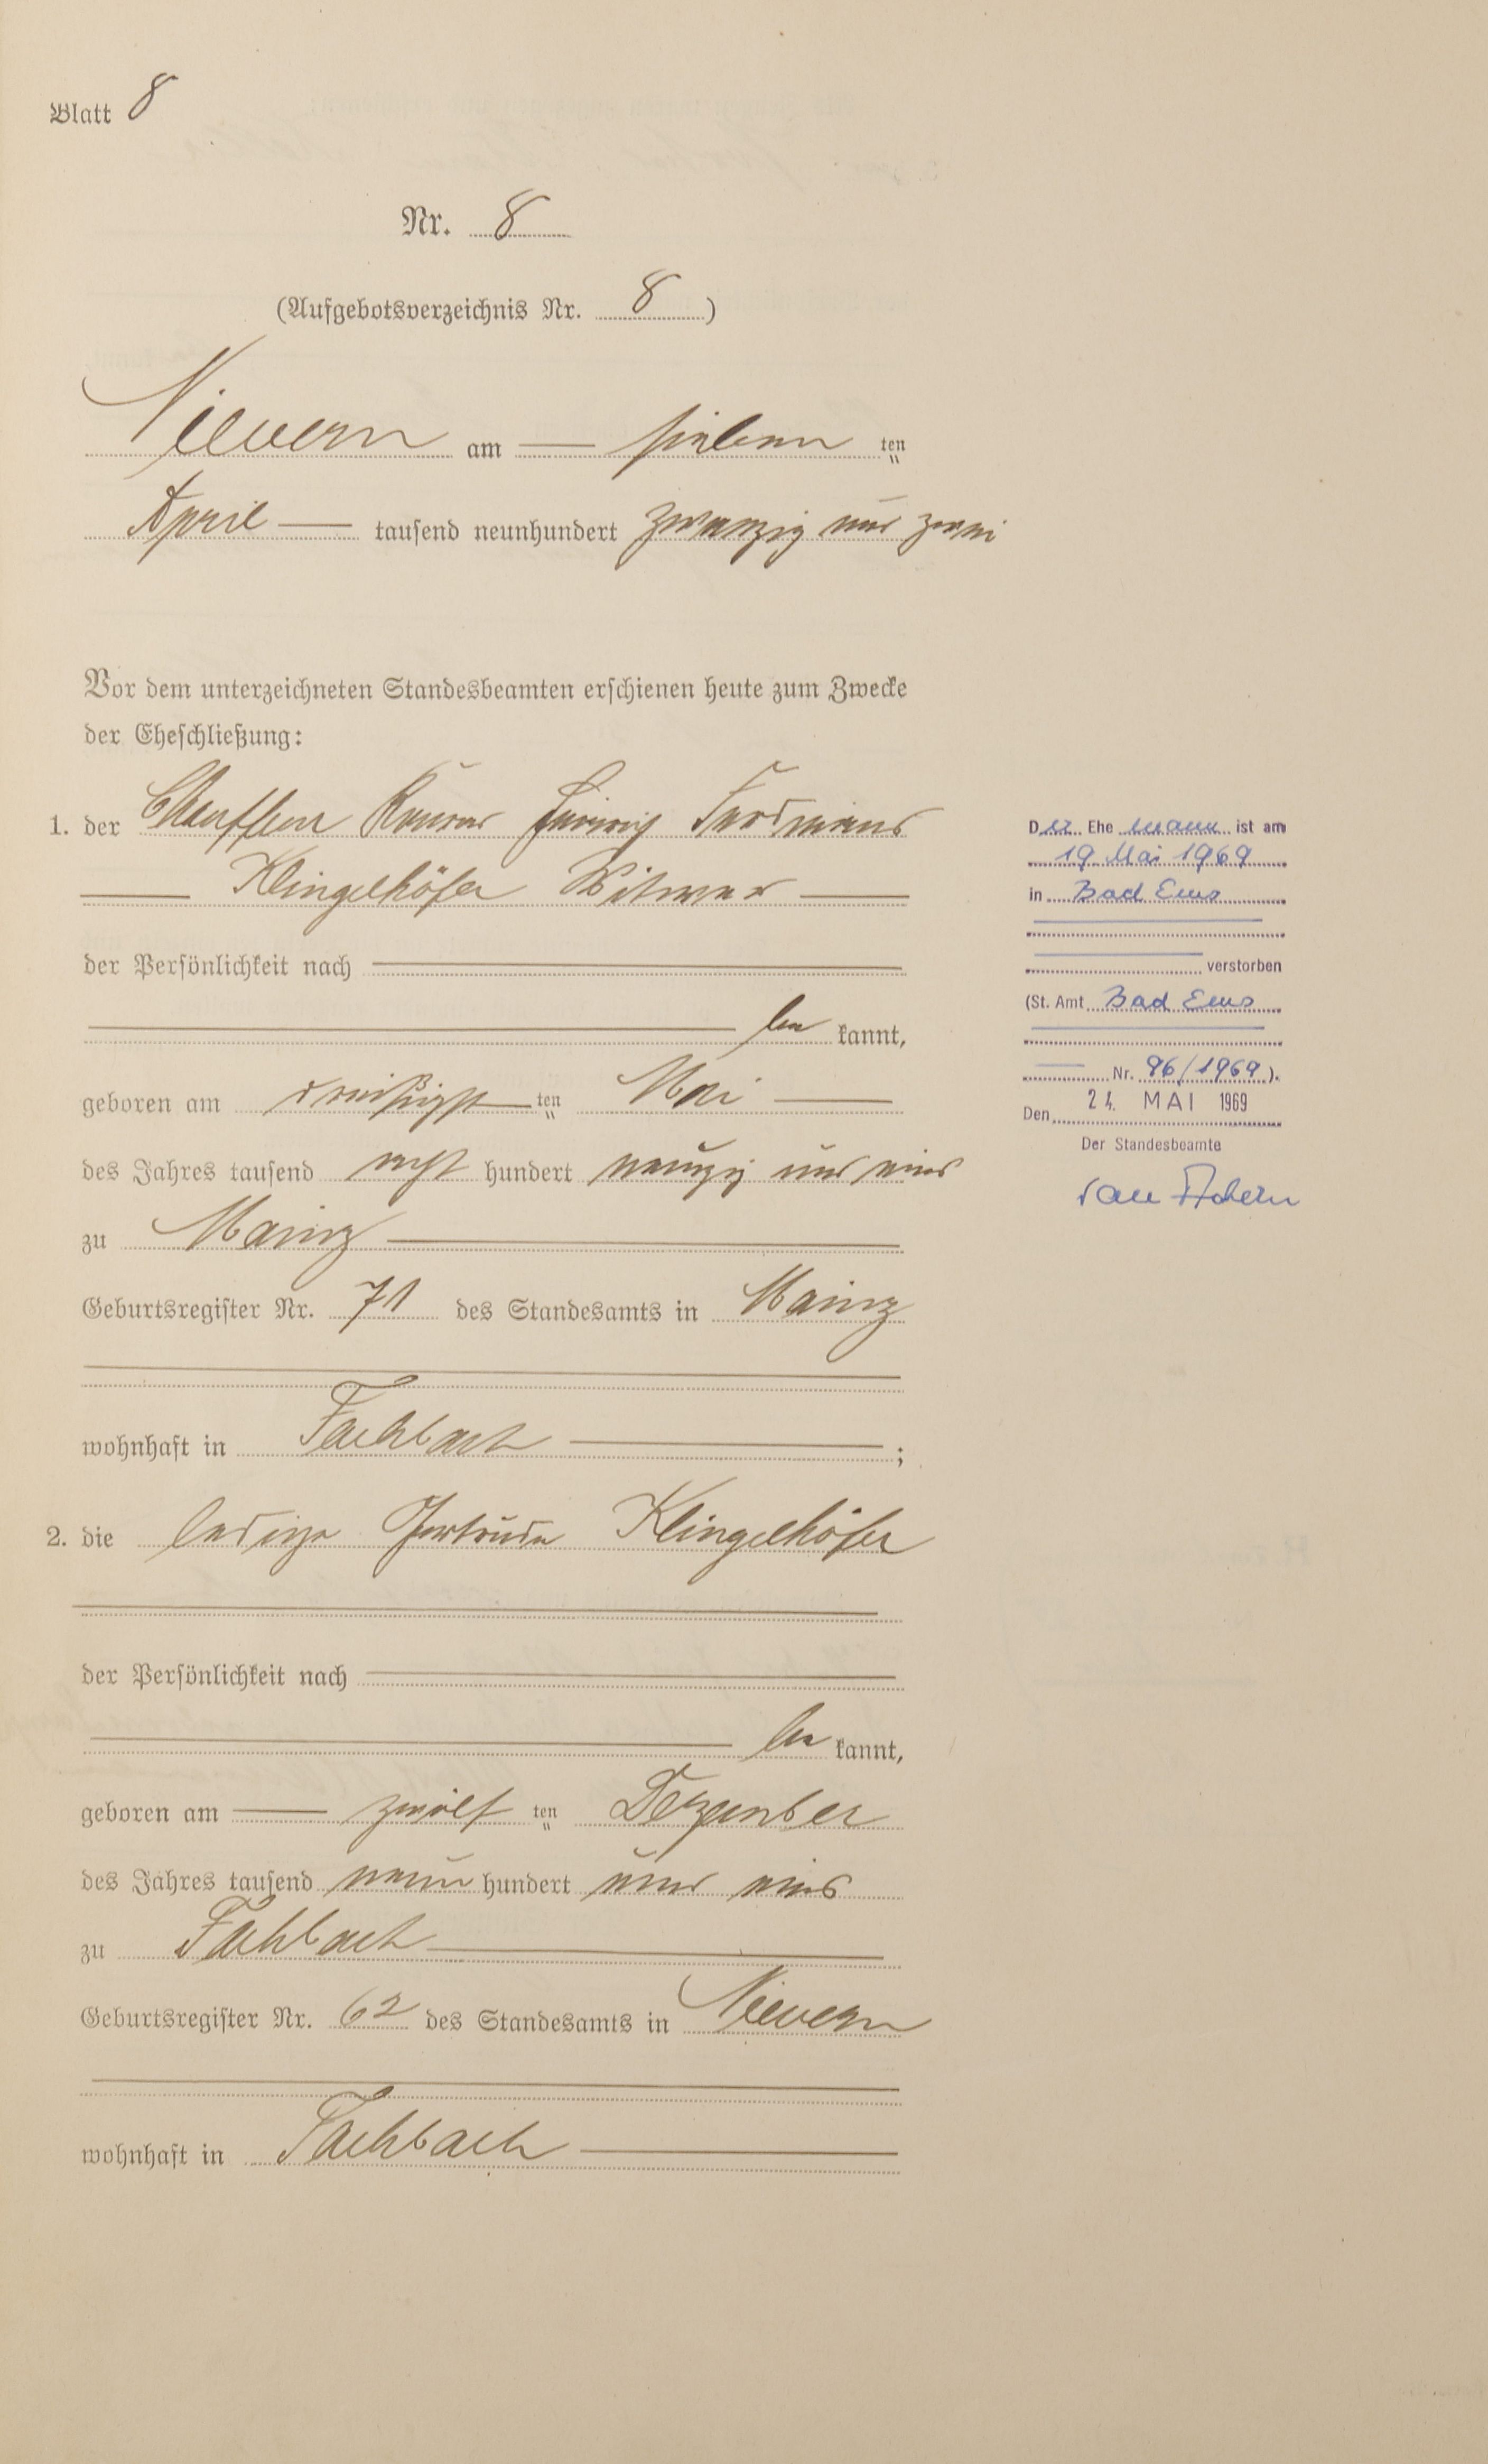 Blatt 8
Nr. 8
(Aufgebotsverzeichnis Nr. 8)
Nievern am sieben ten
April tausend neunhundert zwanzig und zwei
Vor dem unterzeichneten Standesbeamten erschienen heute zum Zwecke
der Eheschließung:
1. der Chauffeur Konrad Ferdinand
Klingelhöfer Witwer
der Persönlichkeit nach
be kannt,
geboren am dreißigst ten Mai
des Jahres tausend acht hundert neunzig und eins
zu Mainz
Geburtsregister Nr. 71 des Standesamts in Mainz
wohnhaft in Fachbach ;
2. die ledige Gertrude Klingelhöfer
der Persönlichkeit nach
be kannt,
geboren am zwölf ten Dezember
des Jahres tausend neun hundert und eins
zu Fachbach
Geburtsregister Nr. 62 des Standesamts in Nievern
wohnhaft in Fachbach
Der Ehe mann ist am
19 Mai 1969
in Bad Ems
verstorben
(St. Amt Bad Ems
Nr. 96/1969).
Den 24. MAI 1969
Der Standesbeamte